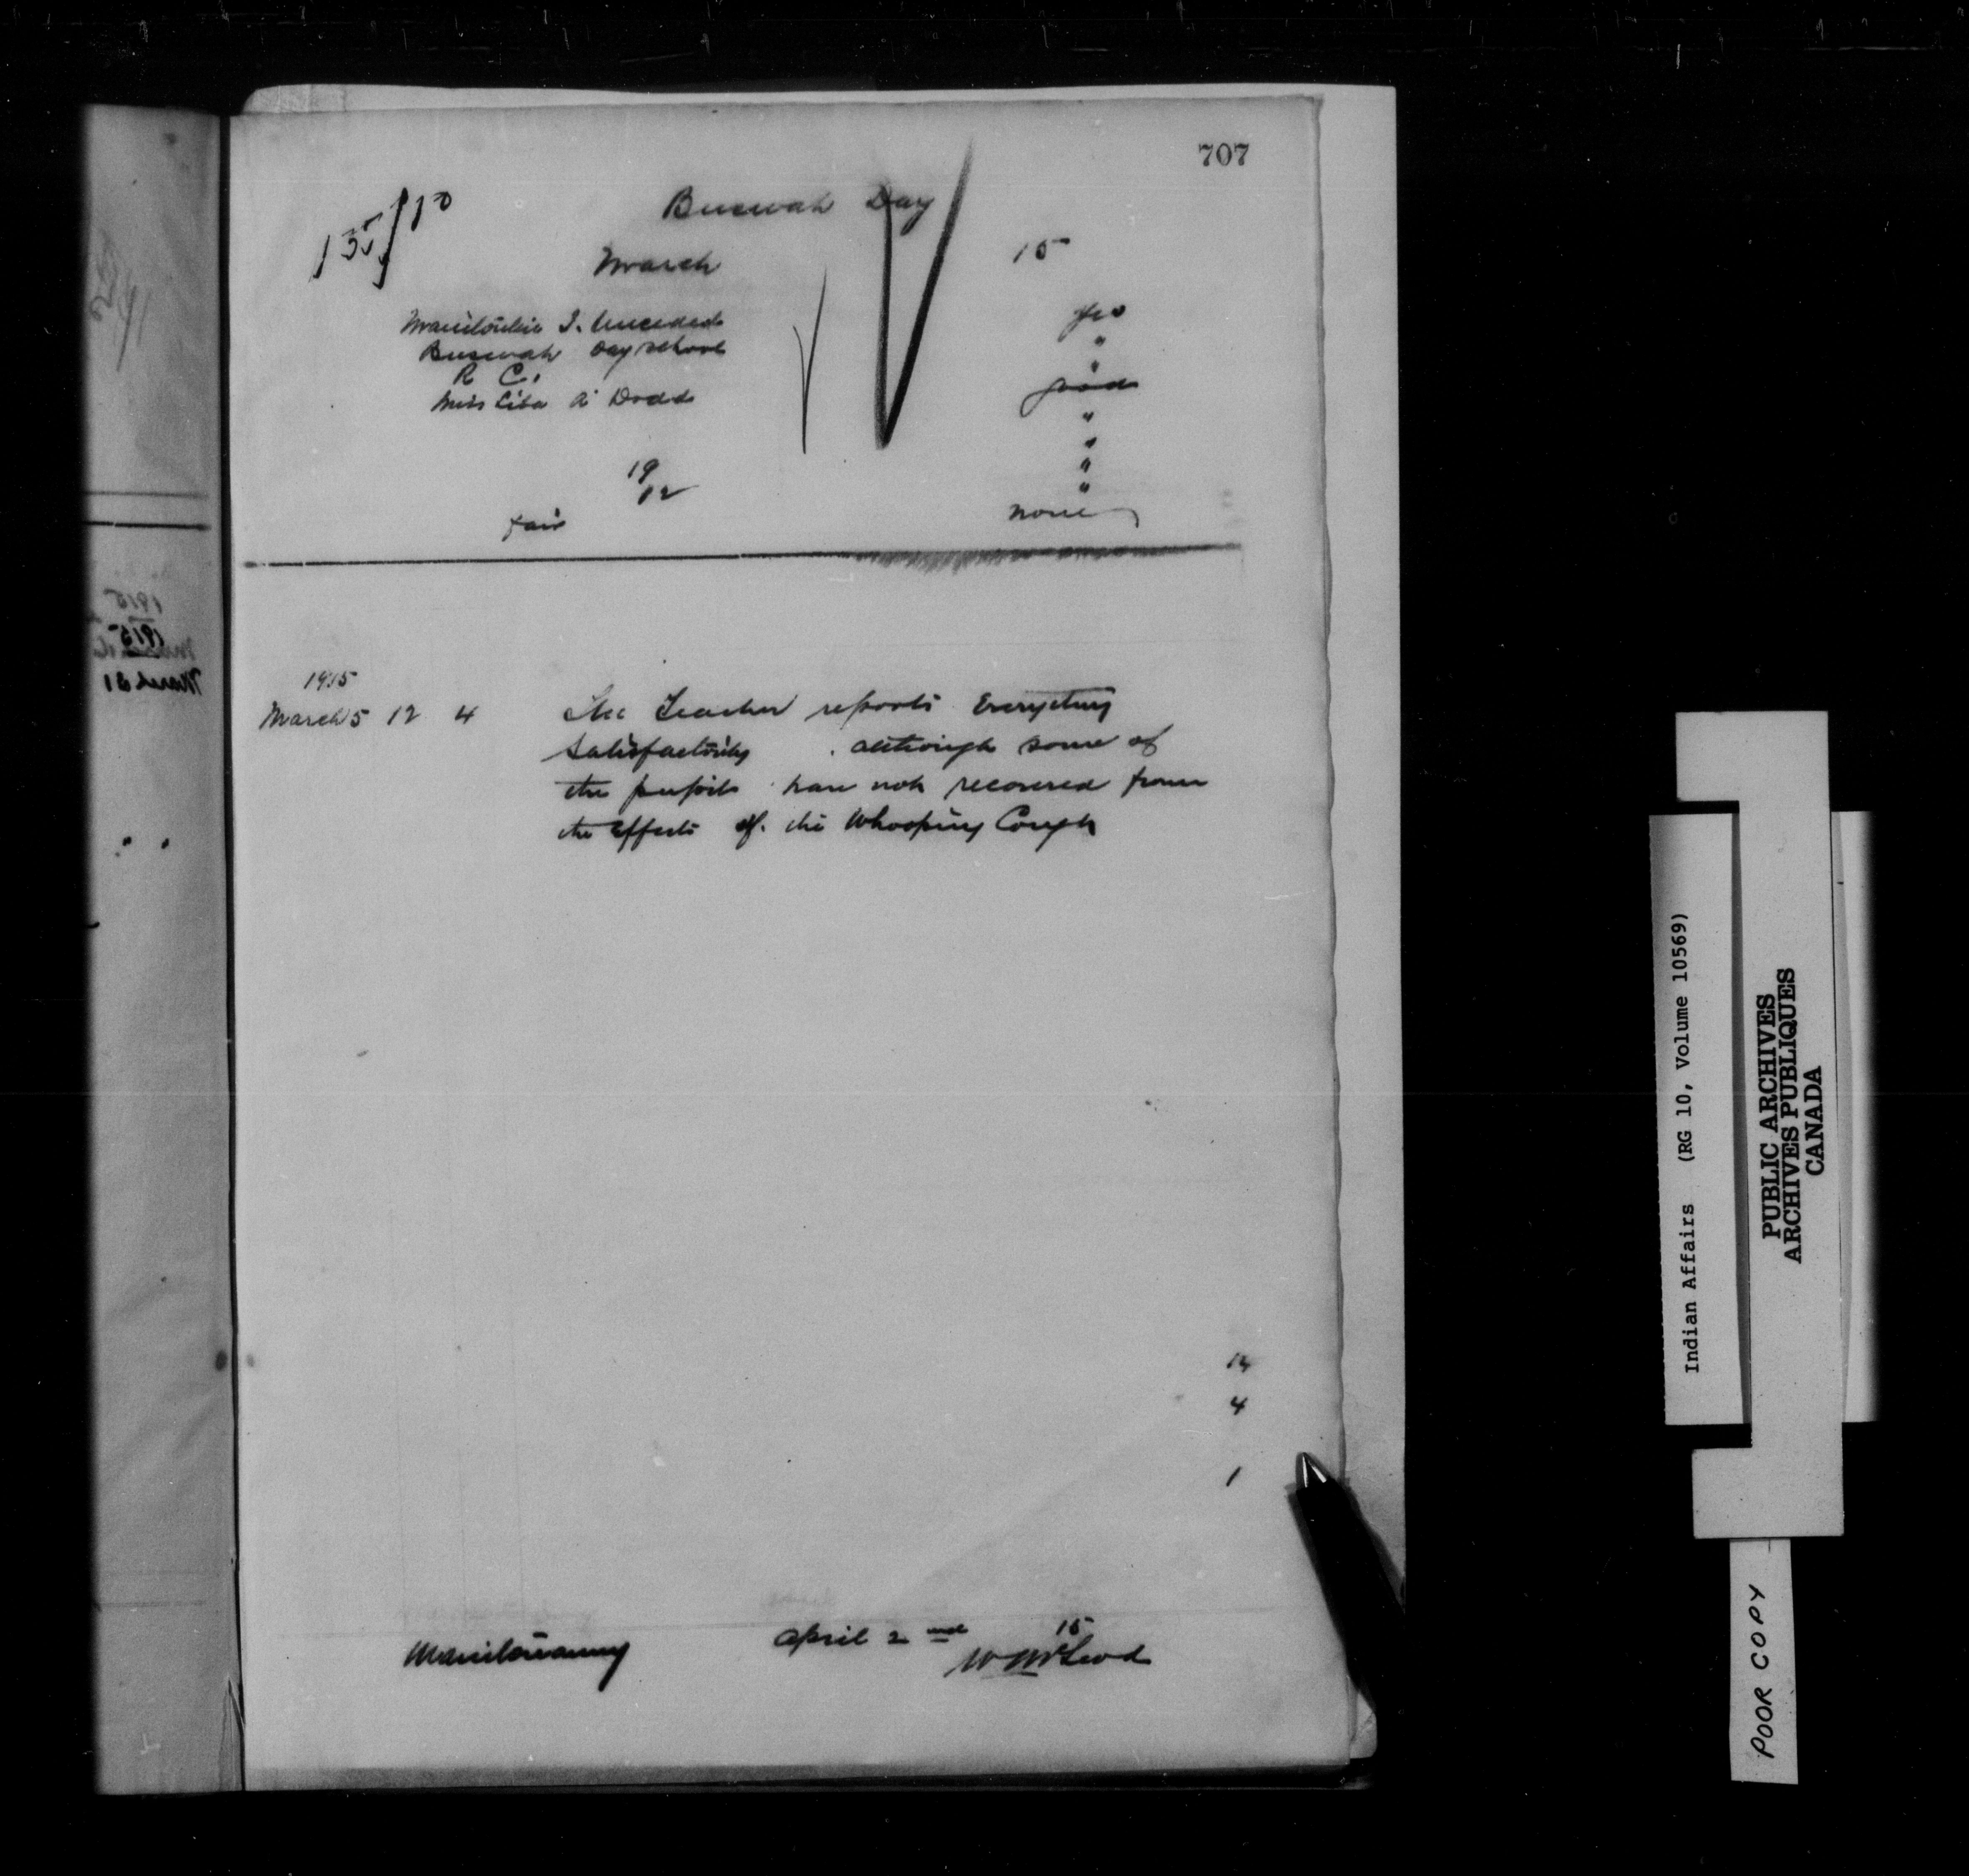 707
Buswah Day
March 15
Manitoulin I. Unceded yes
Buswah Day school "
R C. "
Miss Liba A Dodd good
"
"
19 "
12 "
fair none
1915
March 5 12 4 The Teacher reports Everything
satisfactorily . although some of
the pupils have not recovered from
the effects of. the Whooping Cough
4
1
Manitowaning April 2nd 15
W McLeod
Indian Affairs (RG 10, Volume 10569)
PUBLIC ARCHIVES
ARCHIVES PUBLIQUES
CANADA
POOR COPY